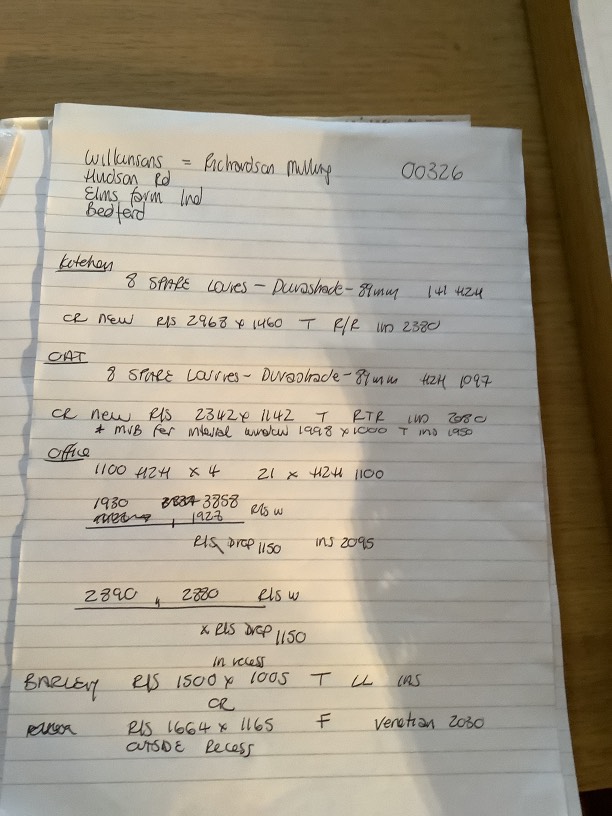 Wilkinsons = Richardson Milling 00326
Hudson Rd
Elms farm Ind
Bedford
Kitchen
8 SPARE Louvres - Durashade - 89mm 141 H2H
CR new R/S 2968 x 1460 T R/R ins 2380
OAT
8 SPARE Louvres - Durashade - 89mm H2H 1097
CR new R/S 2342 x 1142 T RTR ins 2080
* MVB for internal window 1998 x 1000 T ins 1950
Office
1100 H2H x 4 21 x H2H 1100
1930 3858
, 1928 R/S w
R/S Drop 1150 ins 2095
2890 , 2880 R/S w
x R/S Drop 1150
in recess
BARLEY R/S 1500 x 1005 T LL ins
CR
R/S 1664 x 1165 F Venetian 2030
OUTSIDE Recess